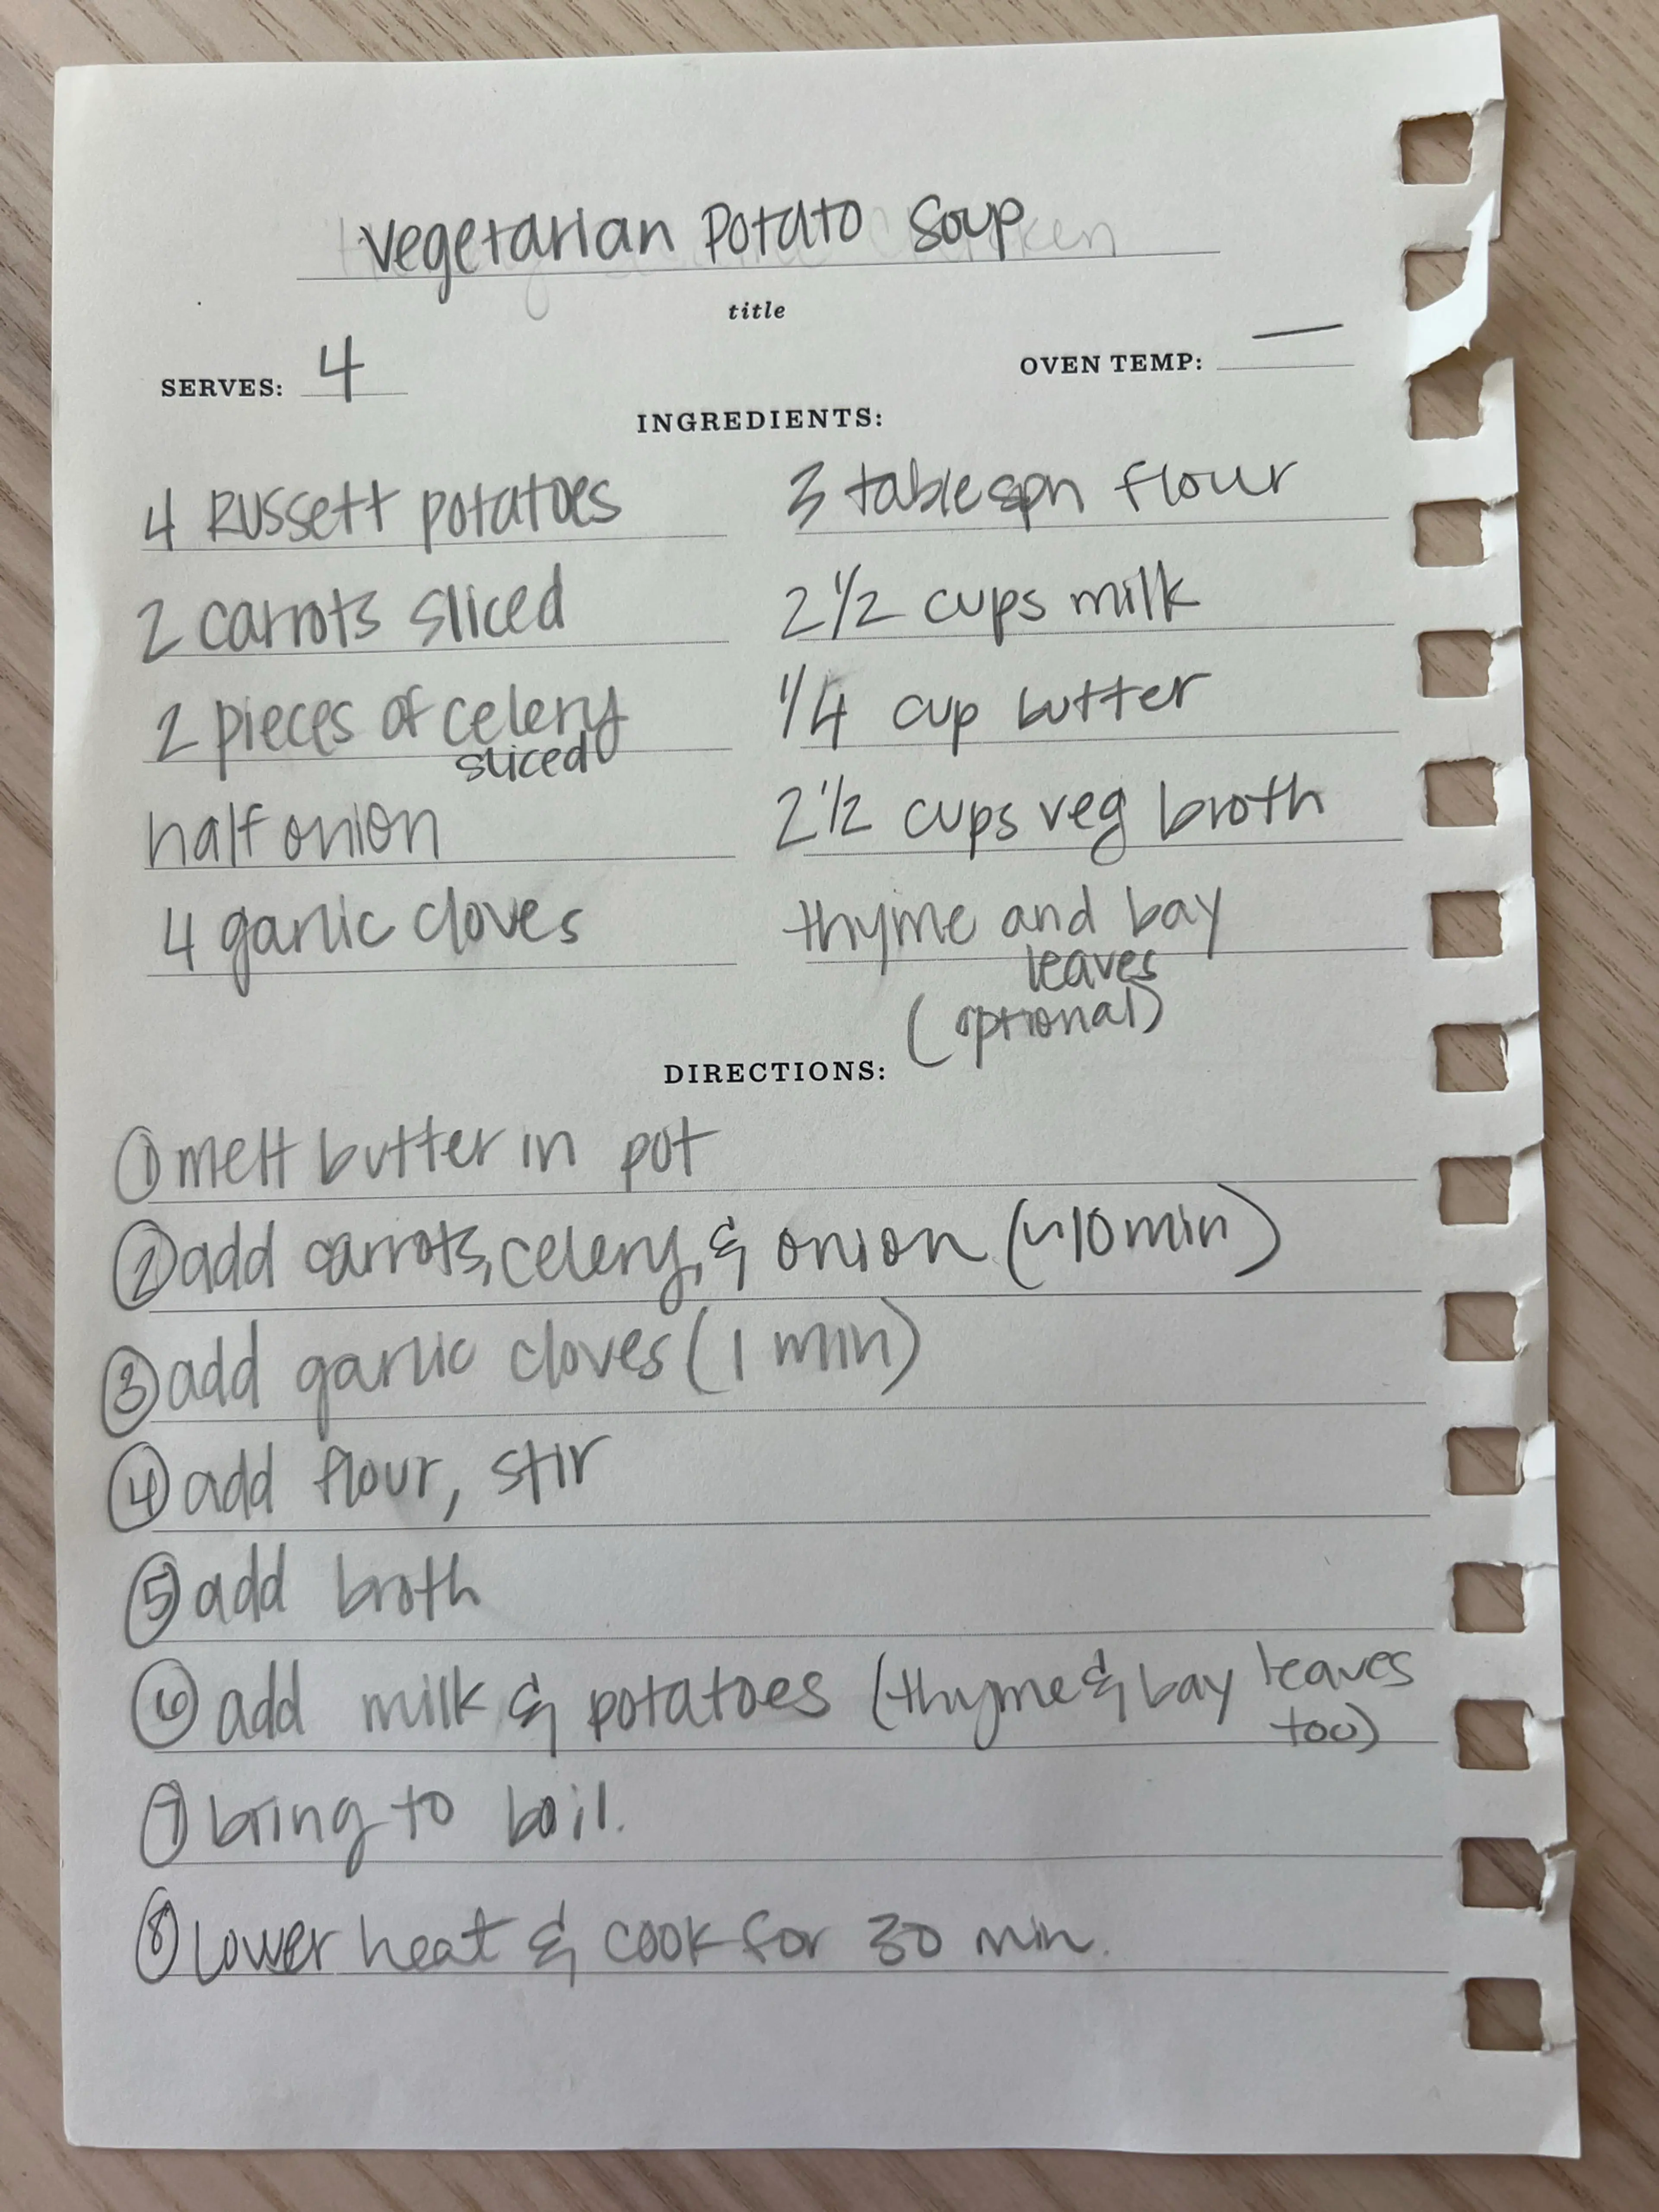 vegetarian Potato Soup
title
SERVES: 4
OVEN TEMP: —
INGREDIENTS:
4 Russett potatoes
2 carrots sliced
2 pieces of celery
sliced
half onion
4 garlic cloves
3 tablespn flour
2 1/2 cups milk
1/4 cup butter
2 1/2 cups veg broth
thyme and bay
leaves
(optional)
DIRECTIONS:
① melt butter in pot
② add carrots, celery, & onion (~10 min)
③ add garlic cloves (1 min)
④ add flour, stir
⑤ add broth
⑥ add milk & potatoes (thyme & bay leaves
too)
⑦ bring to boil.
⑧ lower heat & cook for 30 min.